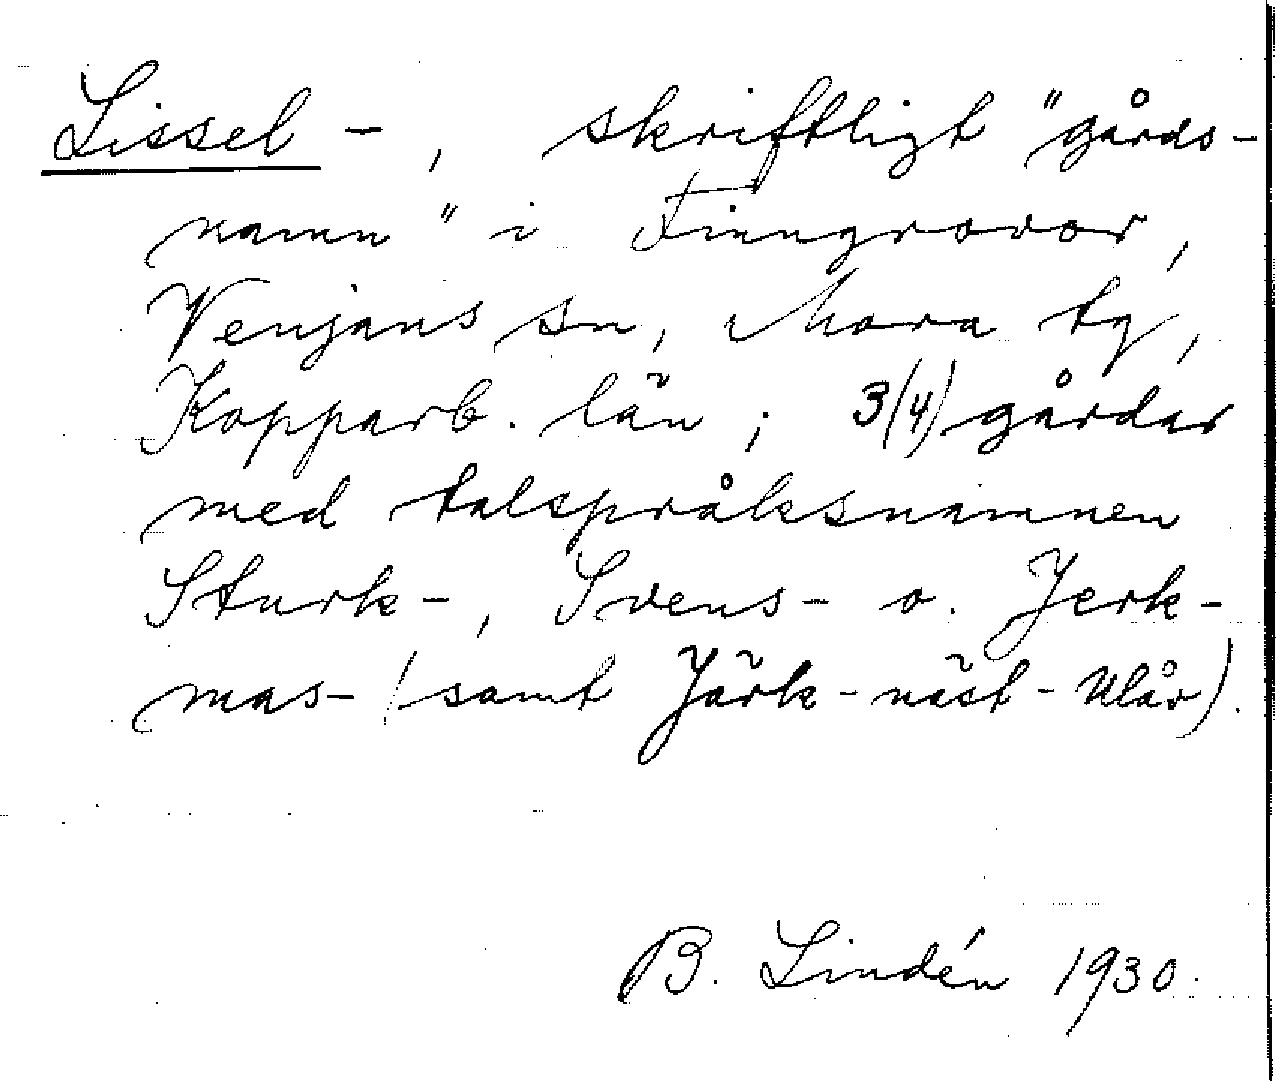 Lissel-, skriftligt "gårds-
namn" i Finngrovor,
Venjans sn, Mora tg,
Kopparb. län; 3(4) gårdar
med talspråksnamnen
Sturk-, Svens- o. Jerk-
mas- (samt Järk-näst-Ulår).
B. Lindén 1930.